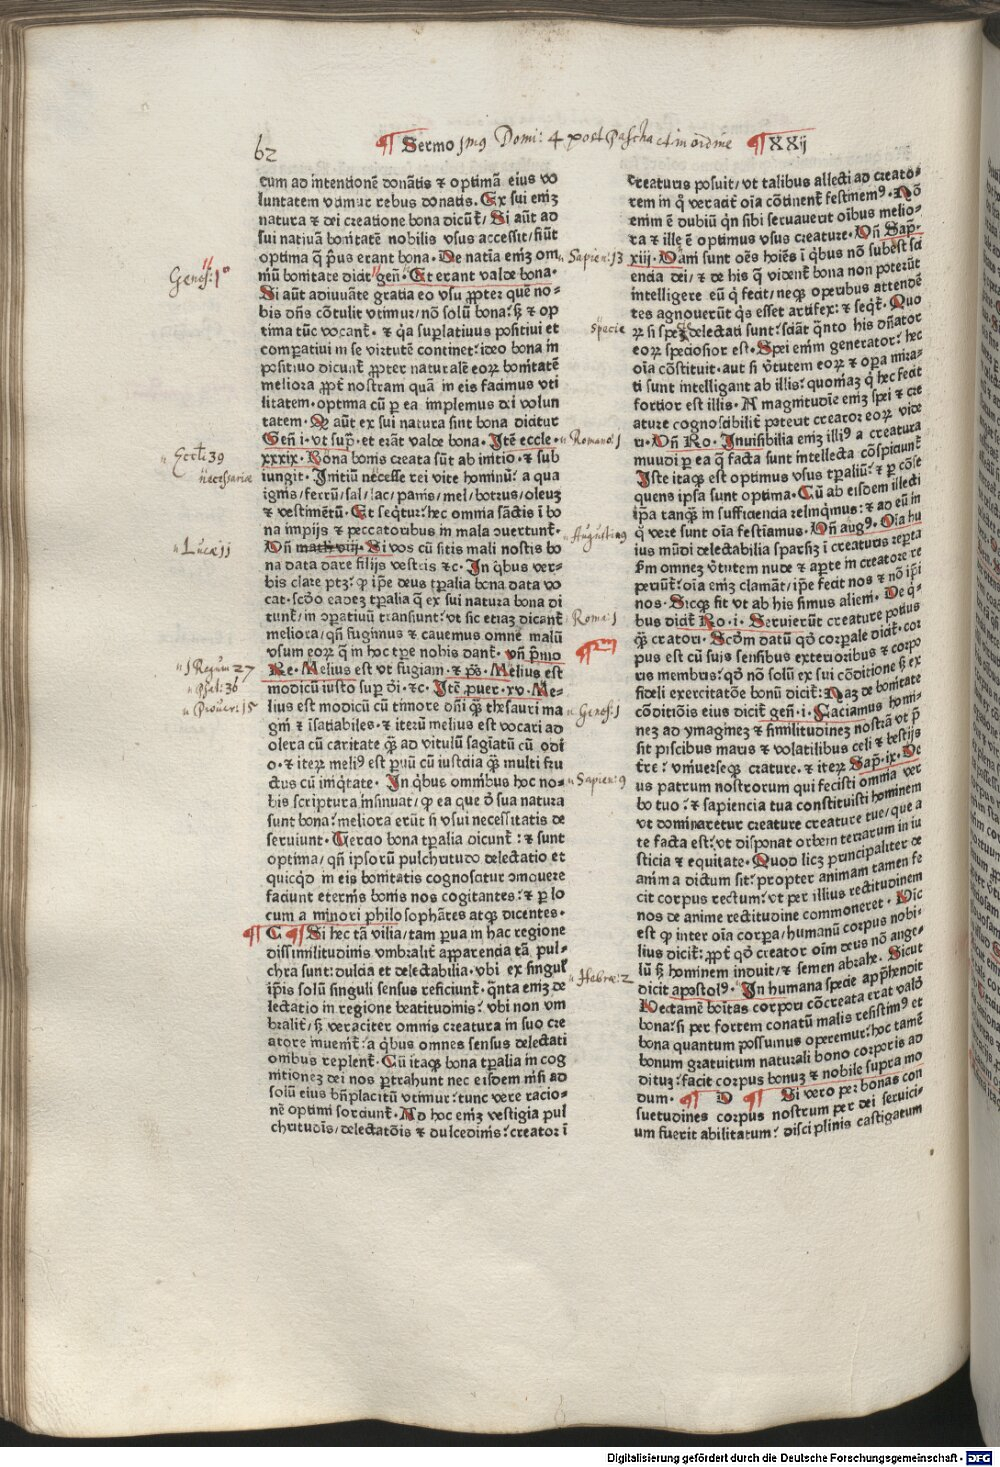 62
¶ Sermo jm9 Domi: 4 post Pascha et in ordine ¶ XXij
cum ad intentionē donātis ⁊ optimā eius vo
luntatem vtimur rebus donatis. Ex sui eniʒ
natura ⁊ dei creatione bona dicūt̄/ Si aūt ad
sui natiuā bonitatē nobilis vsus accessit/ siūt
optima q̄ p̄us erant bona. De natīa eniʒ om
niū bonitate dicit gen̄. Et erant valde bona.
Si aūt adiuuāte gratia eo vsu ꝓpter quē no-
bis dn̄s cōtulit vtimur/ nō solū bona: sʒ ⁊ op
tima tūc vocant̄. ⁊ q̄a suplatiuus positiui et
comparatiui in se virtutē continet: ideo bona in
positiuo dicunt̄ ꝓpter naturalē eoꝝ bonitatē
meliora ꝓpt̄ nostram quā in eis facimus vti
litatem. optima cū ꝑ ea implemus dei volun
tatem. Qꝫ aūt ex sui natura sint bona dicitur
Gen̄ i. vt sup̄. et erāt valde bona. Itē eccle.
xxxix. Bona bonis creata sūt ab initio. ⁊ sub
iungit. Initiū necesse rei vite hominū: a qua
ignis/ ferrū/ sal/ lac/ panis/ mel/ botrus/ oleuʒ
⁊ vestimētū. Et seq̄tur: hec omnia sāctis ī bo
na impijs ⁊ peccatoribus in mala ↄuertunt̄.
Vn̄ math viij. Si vos cū sitis mali nostis bo
na data dare filijs vestris ⁊c. In q̄bus ver-
bis clare ptʒ: ꝙ ip̄e deus tꝑalia bona data vo
cat. scd̄o eadeʒ tꝑalia q̄ ex sui natura bona di
cunt̄/ in ↄꝑatiuū transiunt: vt sic etiaʒ dicant̄
meliora/ qn̄ fugimus ⁊ cauemus omnē malū
vsum eoꝝ q̄ in hoc tp̄e nobis dant̄. vn̄ p̄mo
Re. Melius est vt fugiam. ⁊ p̄s. Melius est
modicū iusto suꝑ di. ⁊c. Itē ꝓuer. xv. Me-
lius est modicū cū timore dn̄i q̄ꝫ thesauri ma
gni ⁊ īsatiabiles. ⁊ iterū melius est vocari ad
olera cū caritate q̄ꝫ ad vitulū sagiatū cū odi
o. ⁊ iteꝝ meli9 est paruū cū iusticia q̄ꝫ multi fru
ctus cū iniq̄tate. In q̄bus omnibus hoc no-
bis scriptura insinuat/ ꝙ ea que d̄ sua natura
sunt bona: meliora erūt si vsui necessitatis de
seruiunt. Tercio bona tꝑalia dicunt̄: ⁊ sunt
optima/ qn̄ ipsorū pulchritudo delectatio et
quicq̄d in eis bonitatis cognoscatur ↄmouere
faciunt eternis bonis nos cogitantes: ⁊ ꝑ lo
cum a minori philosophātes atqꝫ dicentes.
¶ C ¶ Si hec tā vilia/ tam parua in hac regione
dissimilitudinis vmbralit̄ apparencia tā pul-
chra sunt: dulcia et delectabilia. vbi ex singul̄
ip̄is solū singuli sensus reficiunt. q̄nta eniʒ de
lectatio in regione beatitudinis: vbi non vm
bralit̄/ sʒ veraciter omnis creatura in suo cre
atore inuenit̄: a q̄bus omnes sensus delectati
onibus replent̄. Cū itaqꝫ bona tꝑalia in cog
nitioneʒ dei nos ꝑtrahunt nec eisdem nisi ad
solū eius bn̄placitū vtimur: tunc vere racio-
nē optimi sorciunt̄. Ad hoc eniʒ vestigia pul
chritudīs/ delectatōis ⁊ dulcedinis: creator ī
creaturis posuit/ vt talibus allecti ad creato-
rem in q̄ veracit̄ oīa cōtinent̄ festinem9. Nō
enim ē dubiū qn̄ sibi seruauerit oībus melio-
ra ⁊ ille ē optimus vsus creature. Vn̄ Sap̄-
xiij. Vani sunt oēs hoīes ī q̄bus nō subest sci
encia dei/ ⁊ de his q̄ vident̄ bona non poterūt
intelligere eū q̄ fecit/ neqꝫ operibus attendē
tes agnouerūt q̄s esset artifex: ⁊ seq̄t̄. Quo
ꝝ si spe delectati sunt: sciāt q̄nto his dn̄ator
eoꝝ speciosior est. Spei enim generator: hec
oīa cōstituit. aut si v̄tutem eoꝝ ⁊ oꝑa mira-
ti sunt intelligant ab illis: quoniaʒ q̄ hec fecit
fortior est illis. A magnitudīe eniʒ spei ⁊ cre
ature cognoscibilit̄ poterit creator eoꝝ vide
ri. Vn̄ Ro. Inuisibilia eniʒ illi9 a creatura
mundi ꝑ ea q̄ facta sunt intellecta cōspiciunt̄
Iste itaqꝫ est optimus vsus tꝑaliū: ⁊ ꝑ cōse
quens ipsa sunt optima. Cū ab eisdem illecti
ip̄a tanqꝫ in sufficiencia relinq̄mus: ⁊ ad eū in
q̄ vere sunt oīa festīamus. Vn̄ aug9. Oīa hu
ius mūdi delectabilia sparsiʒ ī creaturis reꝑta
ꝓm omneʒ v̄tutem nude ⁊ aꝑte in creatore re
periūt: oīa eniʒ clamāt/ ip̄e fecit nos ⁊ nō ip̄i
nos. Sicqꝫ fit vt ab his simus alieni. De q̄-
bus dicit̄ Ro. i. Seruierūt creature potius
q̄ꝫ creatori. Scd̄m datū qd̄ corꝑale dicit̄. cor
pus est cū suis sensibus exterioribus ⁊ corpo
ris membris: qd̄ nō solū ex sui cōditione sʒ ex
fideli exercitatōe bonū dicit̄: Naʒ de bonitate
cōditiōis eius dicit̄ gen̄. i. Faciamus homi-
neʒ ad ymagineʒ ⁊ similitudineʒ nostrā vt p̄
sit piscibus maris ⁊ volatilibus celi ⁊ bestijs
tr̄e: vniuerseqꝫ creature. ⁊ iteꝝ Sap̄. ix. De
us patrum nostrorum qui fecisti omnia ver
bo tuo: ⁊ sapiencia tua constituisti hominem
vt dominaretur creature creature tue/ que a
te facta est: vt disponat orbem terrarum in iu
sticia ⁊ equitate. Quod licʒ principaliter de
anima dictum sit: propter animam tamen fe
cit corpus rectum: vt per illius rectitudinem
nos de anime rectitudine commoneret. Dic
est ꝙ inter oīa corꝑa/ humanū corpus nobi-
lius dicit̄: ꝓpt̄ qd̄ creator oīm deus nō ange-
lū sʒ hominem induit/ ⁊ semen abrahe. Sicut
dicit apostol9. In humana specie app̄hendit
Nectamē boītas corpori cōcreata erat valde
bona: si per fortem conatū malis resistim9 et
bona quantum possumus operemur: hoc tamē
bonum gratuitum naturali bono corporis ad
dituʒ: facit corpus bonuʒ ⁊ nobile supra mo
dum. ¶ D ¶ Si vero per bonas con
suetudines corpus nostrum per dei seruici-
um fuerit abilitatum: disciplinis castigatum
Genes: 1°
Eccli 39
necessariæ
Lucæ 11
1 Regum 27
Psal: 36
Prover: 15
Sapien: 13
specie
Romano: 1
Augustin9
Roma: 1
¶ 2m
Genes: 1
Sapien: 9
Hebræ: 2
Digitalisierung gefördert durch die Deutsche Forschungsgemeinschaft - DFG